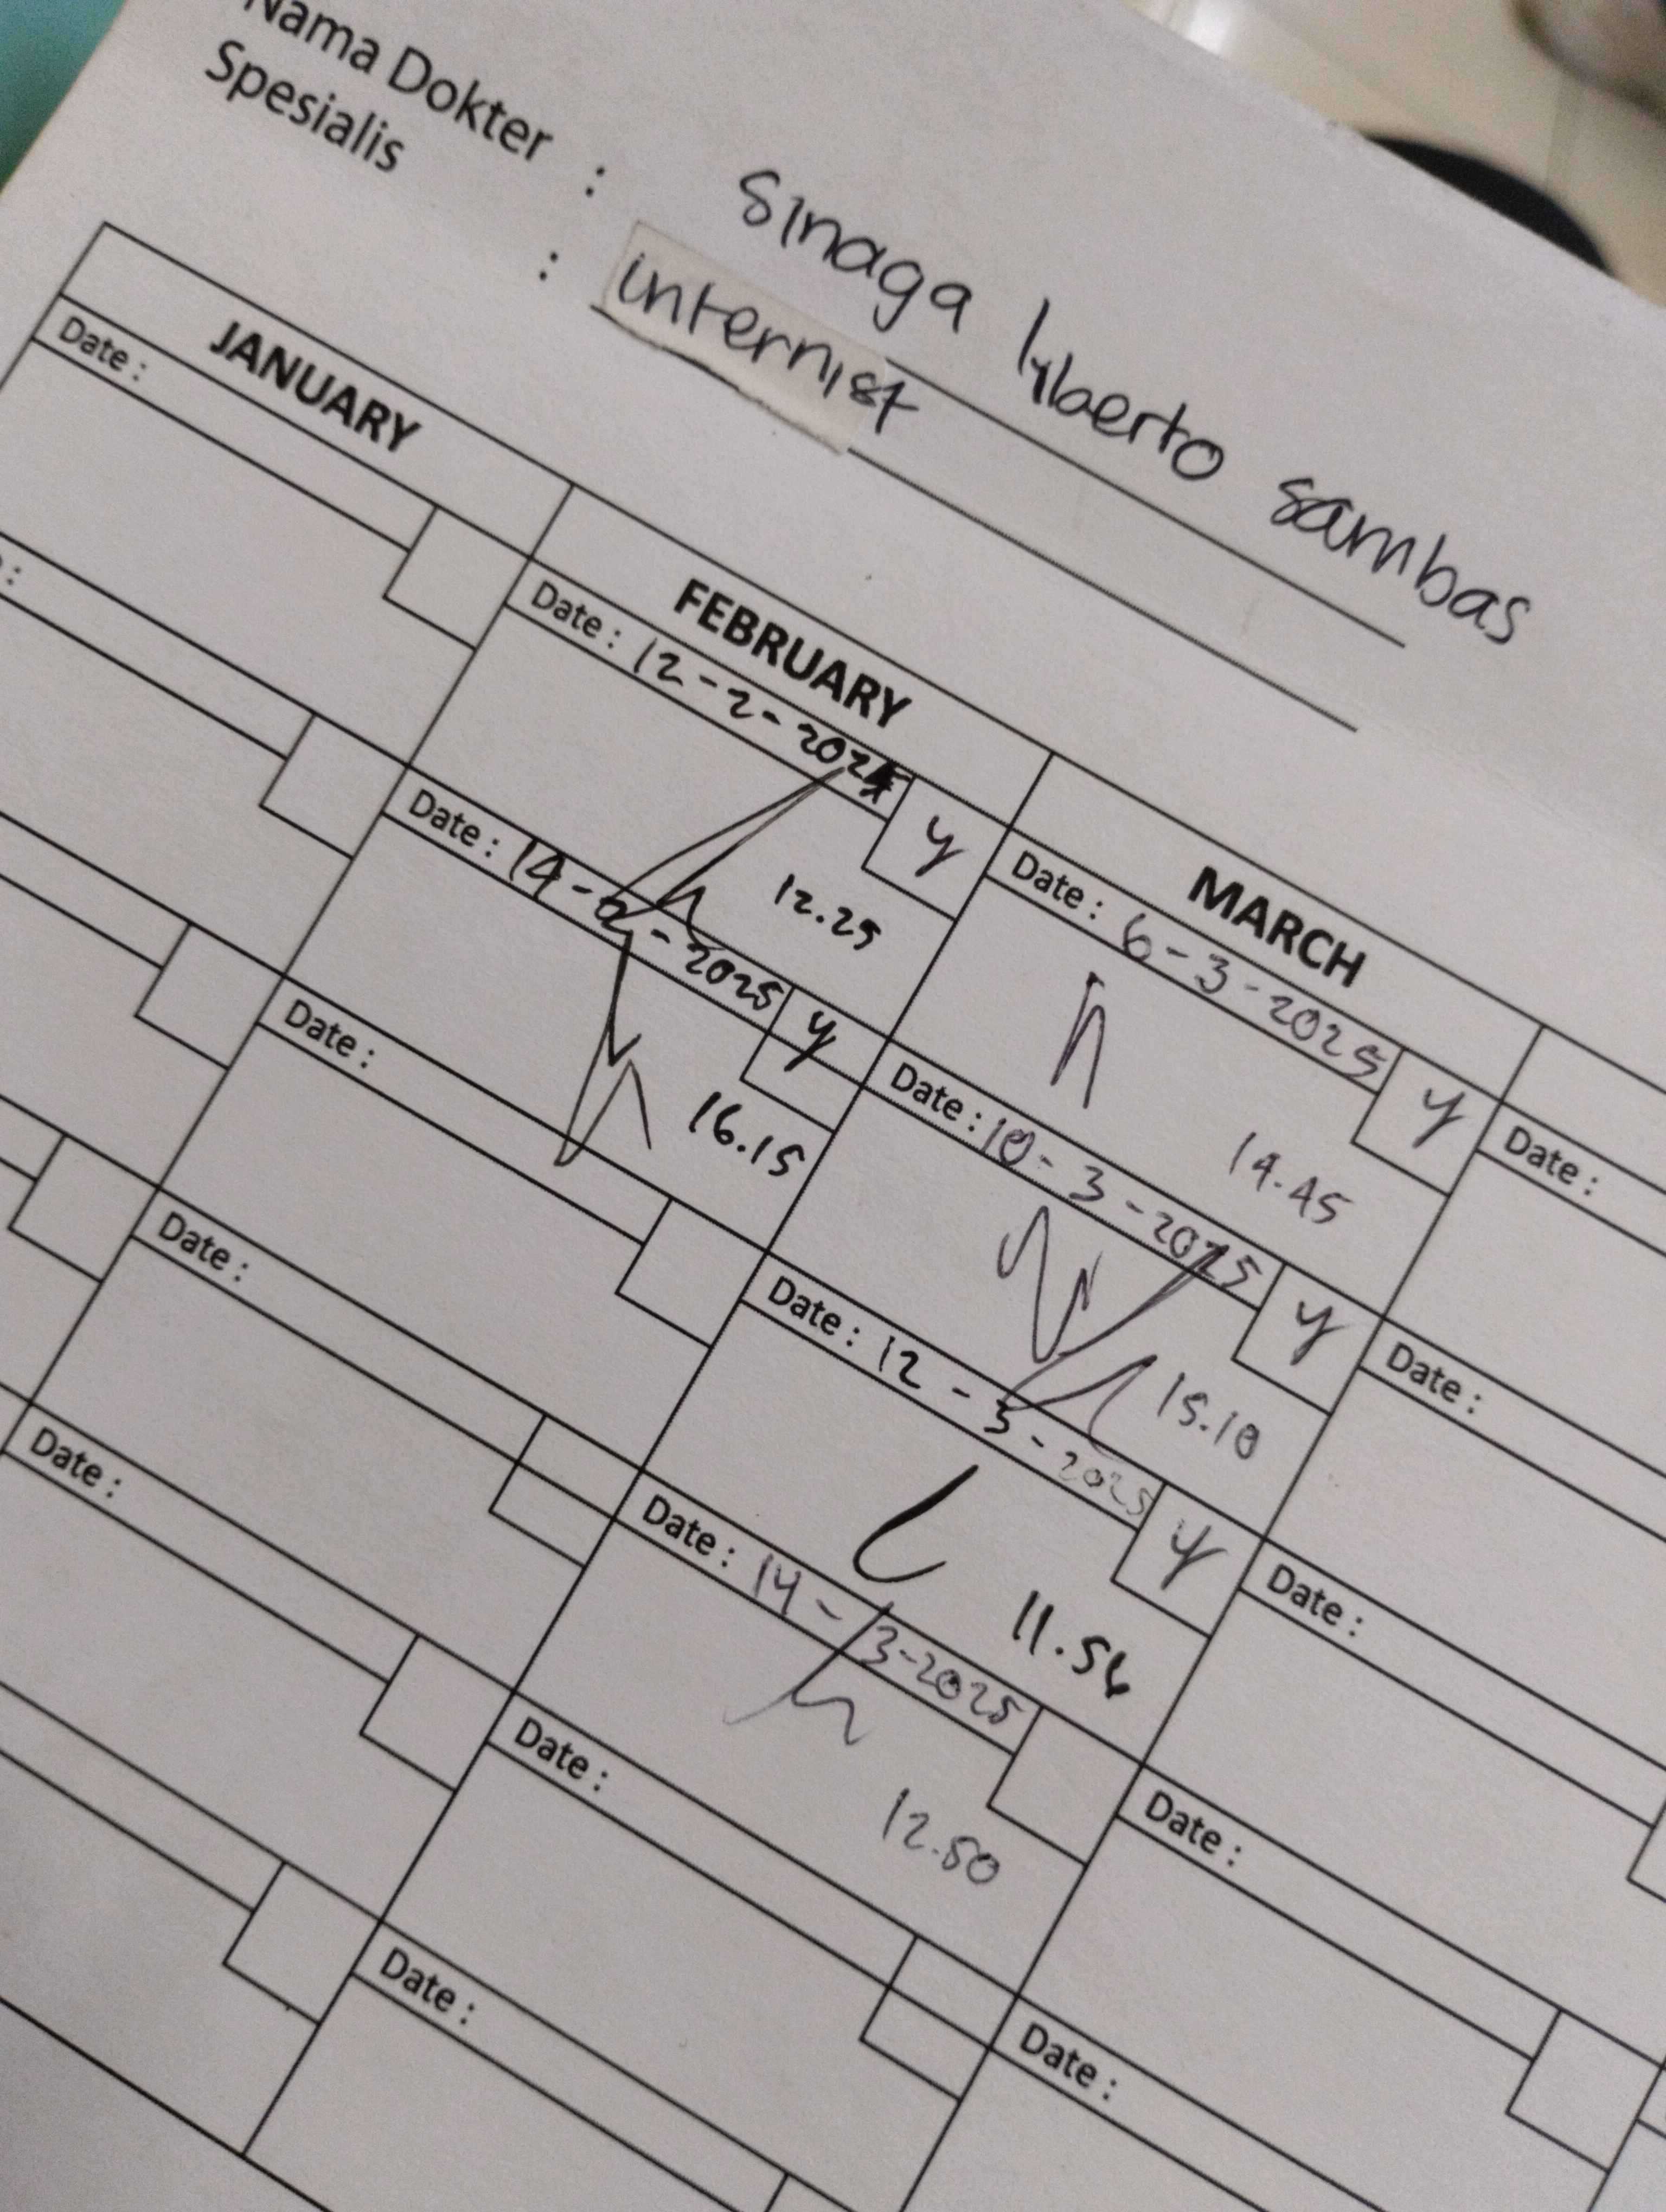 Nama Dokter : Sinaga liberto sambas
Spesialis : internist
JANUARY FEBRUARY MARCH
Date : Date : 12-2-2025 y Date : 6-3-2025 y Date :
12.25 14.45
Date : 14-2-2025 y Date : 10-3-2025 y Date :
16.15 15.10
Date : Date : 12-3-2025 y Date :
11.56
Date : Date : 14-3-2025 Date :
12.50
Date : Date : Date :
Date :